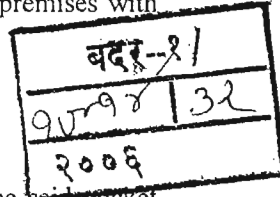 premises with
बदर-१/
३२
२००६